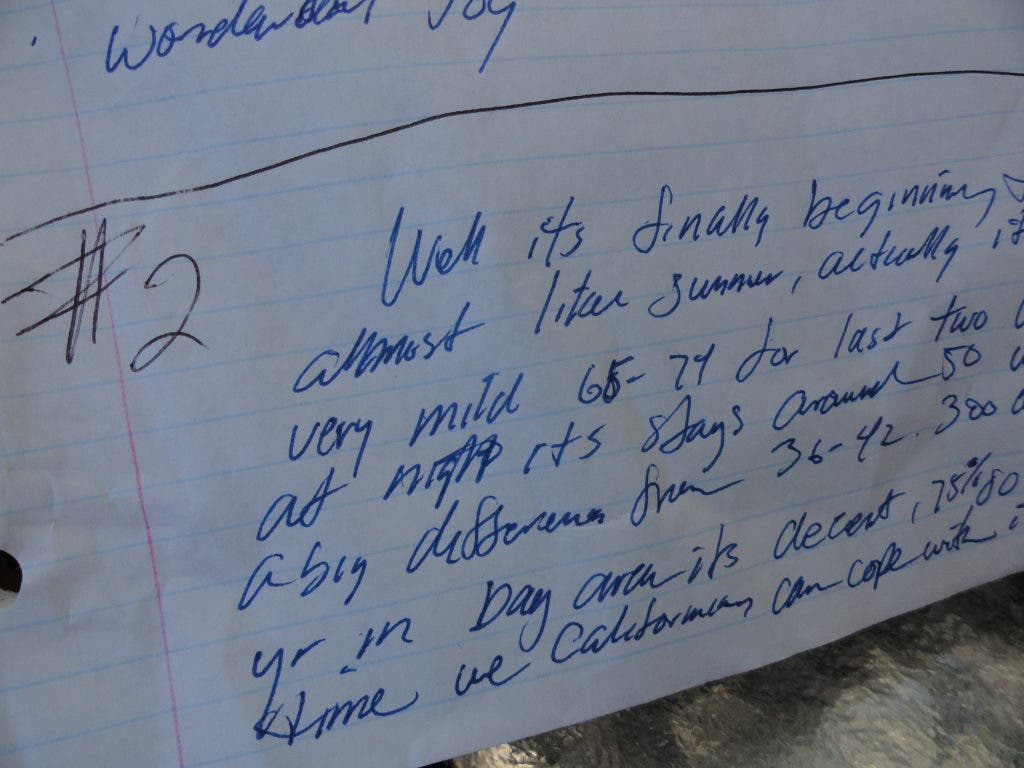 Joy
#2
Well its finally beginning
almost like summer, actually it
very mild 65-74 for last two
at night its stays around 50
a big difference from 36-42. 300
yr in bay area its decent, 75% 80
time we Californians can cope with